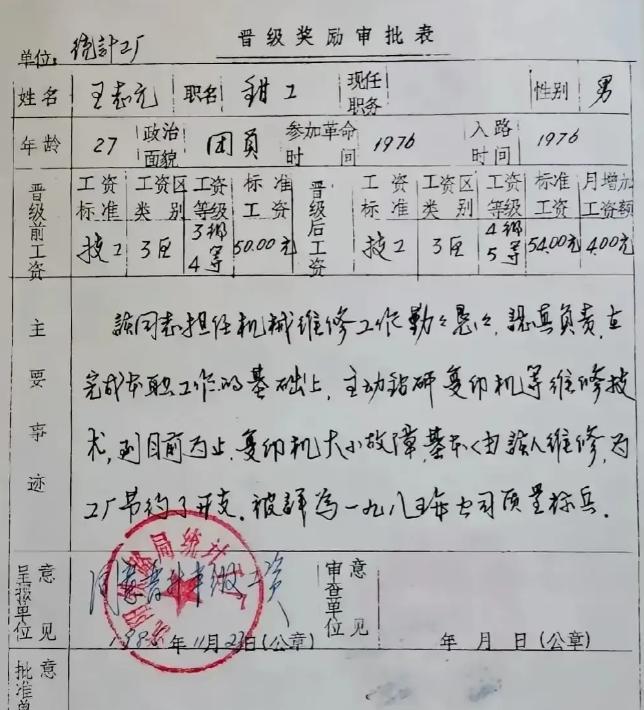 晋级奖励审批表
单位: 統計工厂
姓名 王志元 职名 钳工 现任职务 性别 男
年龄 27 政治面貌 团员 参加革命时间 1976 入路时间 1976
晋级前工资 工资标准 工资区类别 工资等级 标准工资 晋级后工资 工资标准 工资区类别 工资等级 标准工资 月增加工资额
技工 3区 3级4等 50.00元 技工 3区 4级5等 54.00元 4.00元
主要事迹
該同志担任机械维修工作勤々恳々,認真负责,在
完成本职工作的基础上,主动钻研复印机等维修技
术,到目前为止,复印机大小故障,基本く由該人维修,为
工厂节约了开支.被評為一九八五年公司质量标兵.
呈报单位意见 同意晋升半级工资
局统计工厂
1985年11月23日(公章)
审查单位意见
年 月 日(公章)
批准单 意